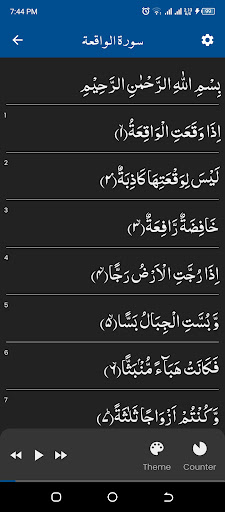 7:44 PM
سورة الواقعة
بِسْمِ اللهِ الرَّحْمٰنِ الرَّحِيْمِ
1
اِذَا وَقَعَتِ الْوَاقِعَةُ ﴿١﴾
2
لَيْسَ لِوَقْعَتِهَا كَاذِبَةٌ ﴿٢﴾
3
خَافِضَةٌ رَّافِعَةٌ ﴿٣﴾
4
اِذَا رُجَّتِ الْاَرْضُ رَجًّا ﴿۴﴾
5
وَّ بُسَّتِ الْجِبَالُ بَسًّا ﴿۵﴾
6
فَكَانَتْ هَبَآءً مُّنْبَثًّا ﴿۶﴾
7
وَّ كُنْتُمْ اَزْوَاجًا ثَلٰثَةً ﴿۷﴾
Theme
Counter